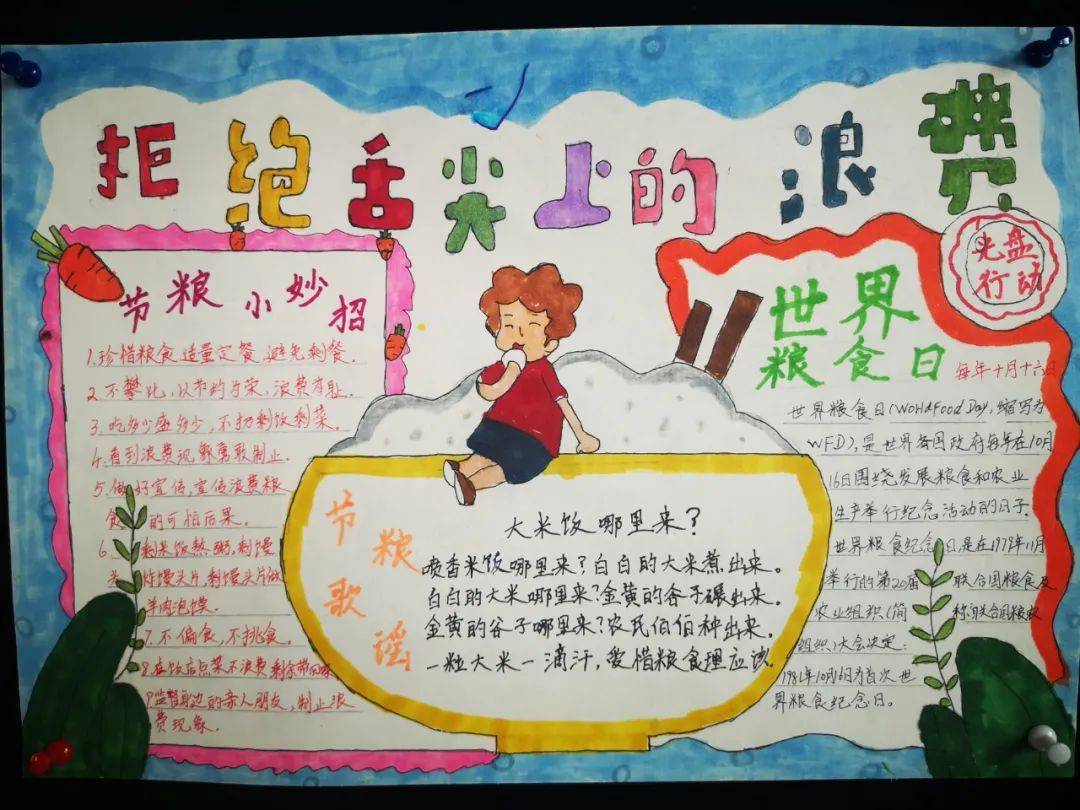 拒绝舌尖上的浪费
节粮小妙招
1.珍惜粮食适量定餐.避免剩餐.
2.不攀比,以节约为荣,浪费为耻.
3.吃多少盛多少,不扔剩饭剩菜.
4.看到浪费现象勇敢制止.
5.做好宣传,宣传浪费粮
食的可怕后果。
6.剩米饭熬粥,剩馒
炸馒头片,剩馒头片做
羊肉泡馍.
7.不偏食,不挑食.
8.在饭店点菜不浪费剩余带回家
9监督身边的亲人朋友,制止浪
费现象.
节粮歌谣
大米饭哪里来?
喷香米饭哪里来?白白的大米煮出来。
白白的大米哪里来?金黄的谷子碾出来.
金黄的谷子哪里来?农民伯伯种出来.
一粒大米一滴汗,爱惜粮食理应该.
光盘
行动
世界
粮食日
每年十月十六日
世界粮食日(World Food Day,缩写为
WFD),是世界各国政府每年在10月
16日围绕发展粮食和农业
生产举行纪念活动的日子.
世界粮食纪念日,是在1979年11月
举行的第20届联合国粮食及
农业组织(简称联合国粮农
组织)大会决定:
1981年10月16日为首次世
界粮食纪念日。